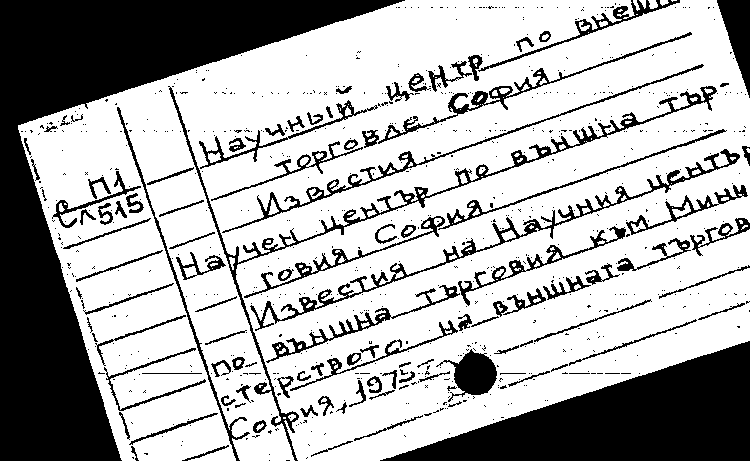 П1
Сл515
Научный центр по внешн
торговле. София.
Известия...
Научен център по външна тър-
говия. София.
Известия на Научния център
по външна търговия към Мини
стерството на външната търгов
София, 1975